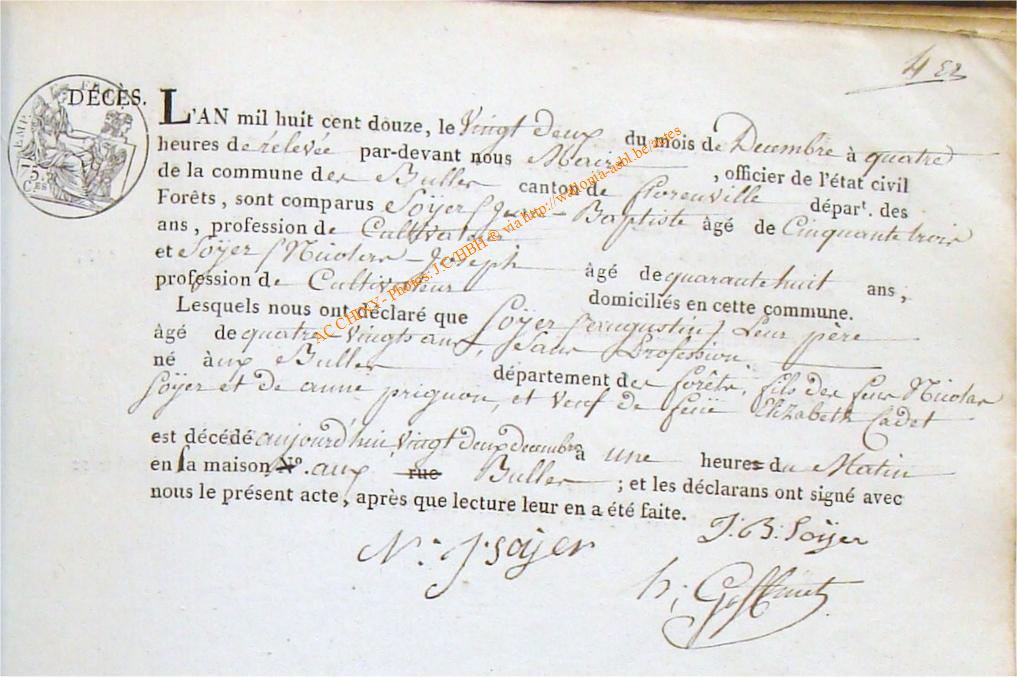 4 er
DÉCÈS. L'AN mil huit cent douze, le vingt deux du mois de Decembre à quatre
heures de rélevée par-devant nous Maire, officier de l'état civil
de la commune des Bulles canton de florenville départ. des
Forêts, sont comparus Soÿer (Jean-Baptiste âgé de Cinquante trois
ans, profession de Cultivateur
et Soÿer (Nicolas-Joseph âgé de quarante huit ans;
profession de Cultivateur domiciliés en cette commune.
Lesquels nous ont déclaré que Soÿer (augustin) Leur père
âgé de quatre vingts ans, Sans Profession
né aux Bulles département des forêts, fils des feus Nicolas
Soÿer et de anne prignon, et Veuf de feüe Elizabeth Cadet
est décédé aujourd'hui vingt deux decembre à une heures du Matin
en sa maison N°. aux rue Bulles; et les déclarans ont signé avec
nous le présent acte, après que lecture leur en a été faite.
J: B: Soÿer
N: J: soÿer
h; Goffinet
AC CHINY - Photos: J.C. HBH ® via http://wallonia-asbl.be/actes